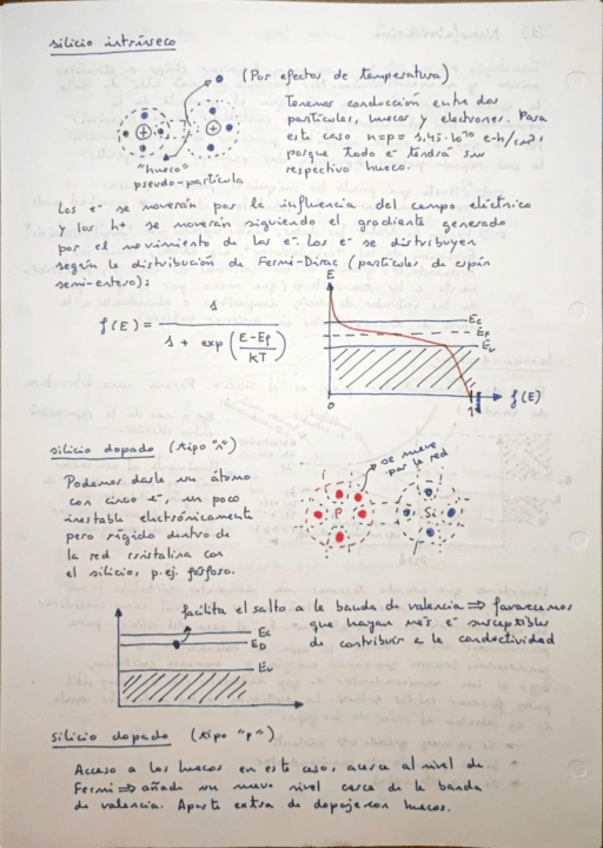 silicio intrínseco
(Por efectos de temperatura)
Tenemos conducción entre dos
partículas, huecos y electrones. Para
este caso n=p= 1,45·10¹⁰ e-h/cm³,
porque todo e⁻ tendrá su
respectivo hueco.
+ +
"hueco"
pseudo-partícula
Los e⁻ se moverán por la influencia del campo eléctrico
y los h+ se moverán siguiendo el gradiente generado
por el movimiento de los e⁻. Los e⁻ se distribuyen
según la distribución de Fermi-Dirac (partículas de espín
semi-entero):
f(E) = 1 / (1 + exp((E-Ef)/kT))
E
Ec
Ef
Ev
0
1
f(E)
silicio dopado (tipo "n")
Podemos darle un átomo
con cinco e⁻, un poco
inestable electrónicamente
pero rígido dentro de
la red cristalina con
el silicio, p.ej. fósforo.
se mueve
por la red
P
Si
facilita el salto a la banda de valencia ⇒ favorecemos
que hayan más e⁻ susceptibles
de contribuir a la conductividad
Ec
ED
Ev
silicio dopado (tipo "p")
Acceso a los huecos en este caso, acerca al nivel de
Fermi ⇒ añade un nuevo nivel cerca de la banda
de valencia. Aporte extra de dopaje con huecos.